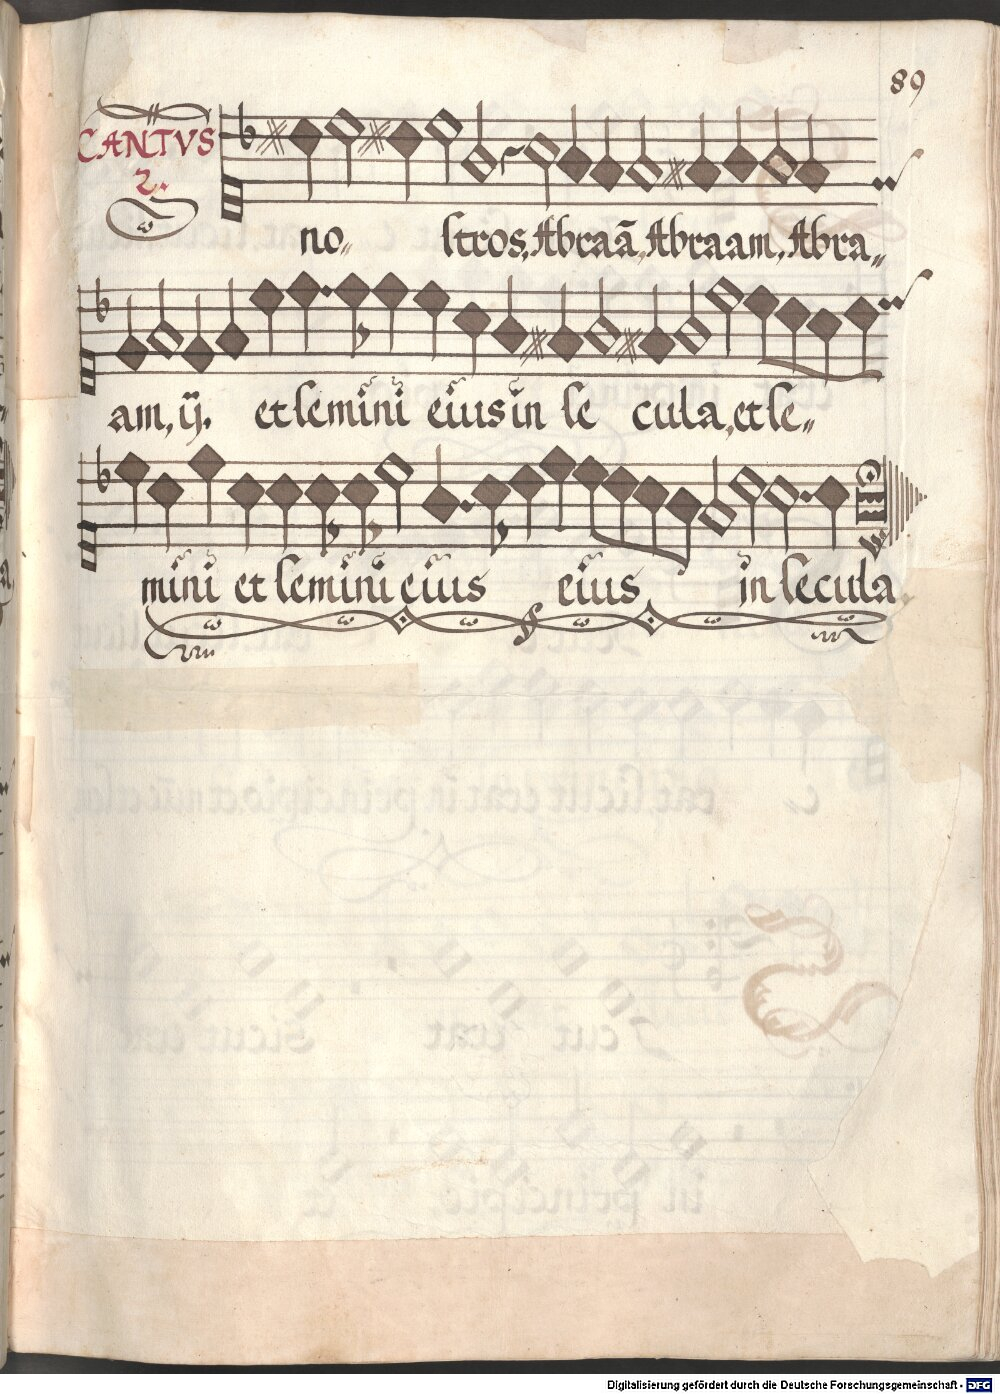 89
CANTVS
2.
no„ stros, Abraã, Abraam, Abra„
am, ij. et semini eius in se cula, et se„
mini et semini eius eius in secula
Digitalisierung gefördert durch die Deutsche Forschungsgemeinschaft - DFG